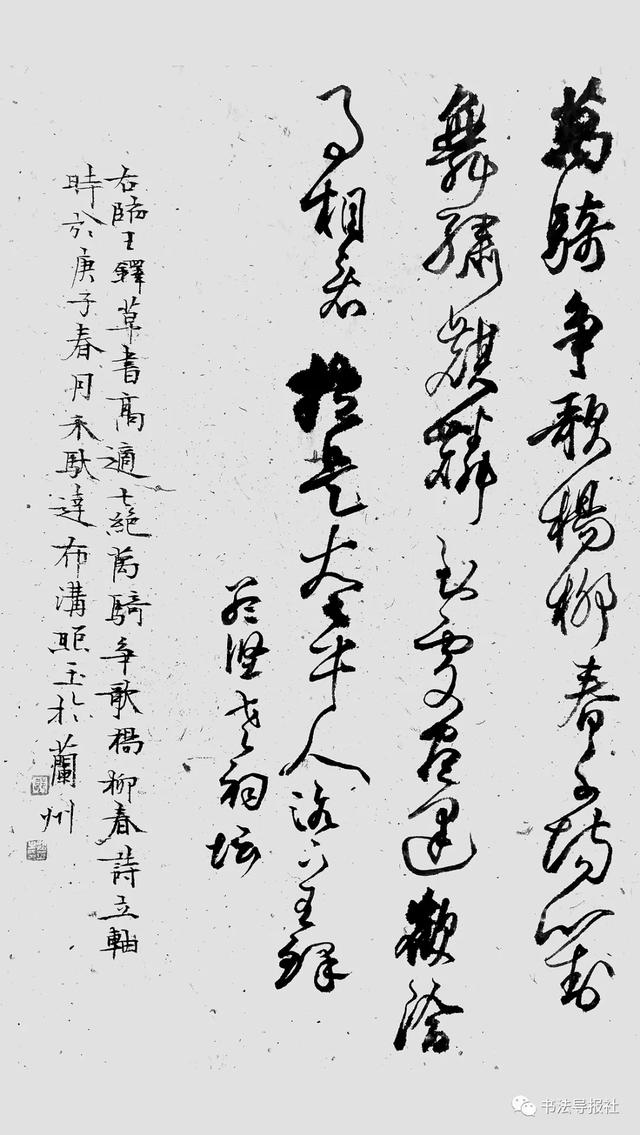 萬騎争歌楊柳春千場對
舞繡麒麟到處盡逢歡洽
事相看總是太平人洛下王鐸
老詞壇
右師王鐸草書高適七絕萬騎争歌楊柳春詩立軸
時於庚子春月馱達布溝熙玉於蘭州
书法导报社